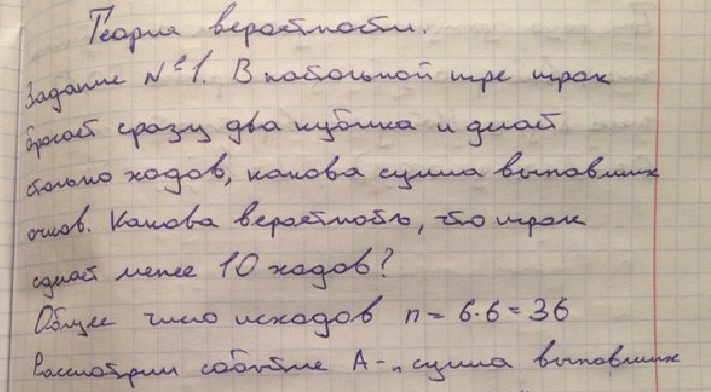 Теория вероятности.
Задание №1. В настольной игре игрок
бросает сразу два кубика и делает
столько ходов, какова сумма выпавших
очков. Какова вероятность, что игрок
сделает менее 10 ходов?
Общее число исходов n = 6·6 = 36
Рассмотрим событие А - "сумма выпавших